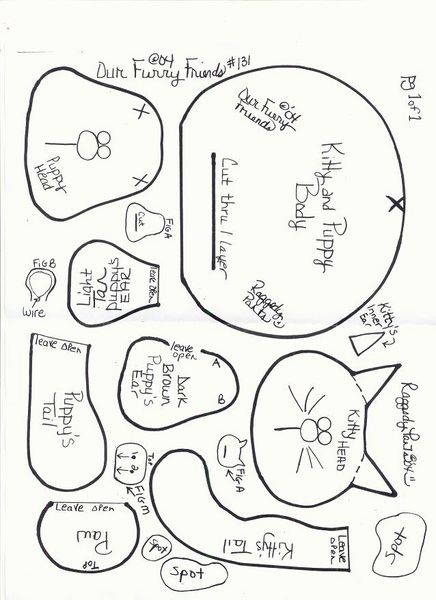 @04
Our Furry Friends #131
pg 1 of 1
Puppy
Head
X
X
Our Furry
Friends
@'04
Kitty and Puppy
Body
X
Cut thru 1 layer
Cut
Fig A
Light
Tan
Puppy's
EAR
leave open
Fig B
Wire
Kitty's 2
inner
Ear
leave open
Puppy's
Tail
leave
open
A
B
Dark
Brown
Puppy's
Ear
Kitty
HEAD
Top
Fig M
Fig A
Leave open
Paw
Top
Spot
Spot
Kitty's Tail
Leave
Open
Spot